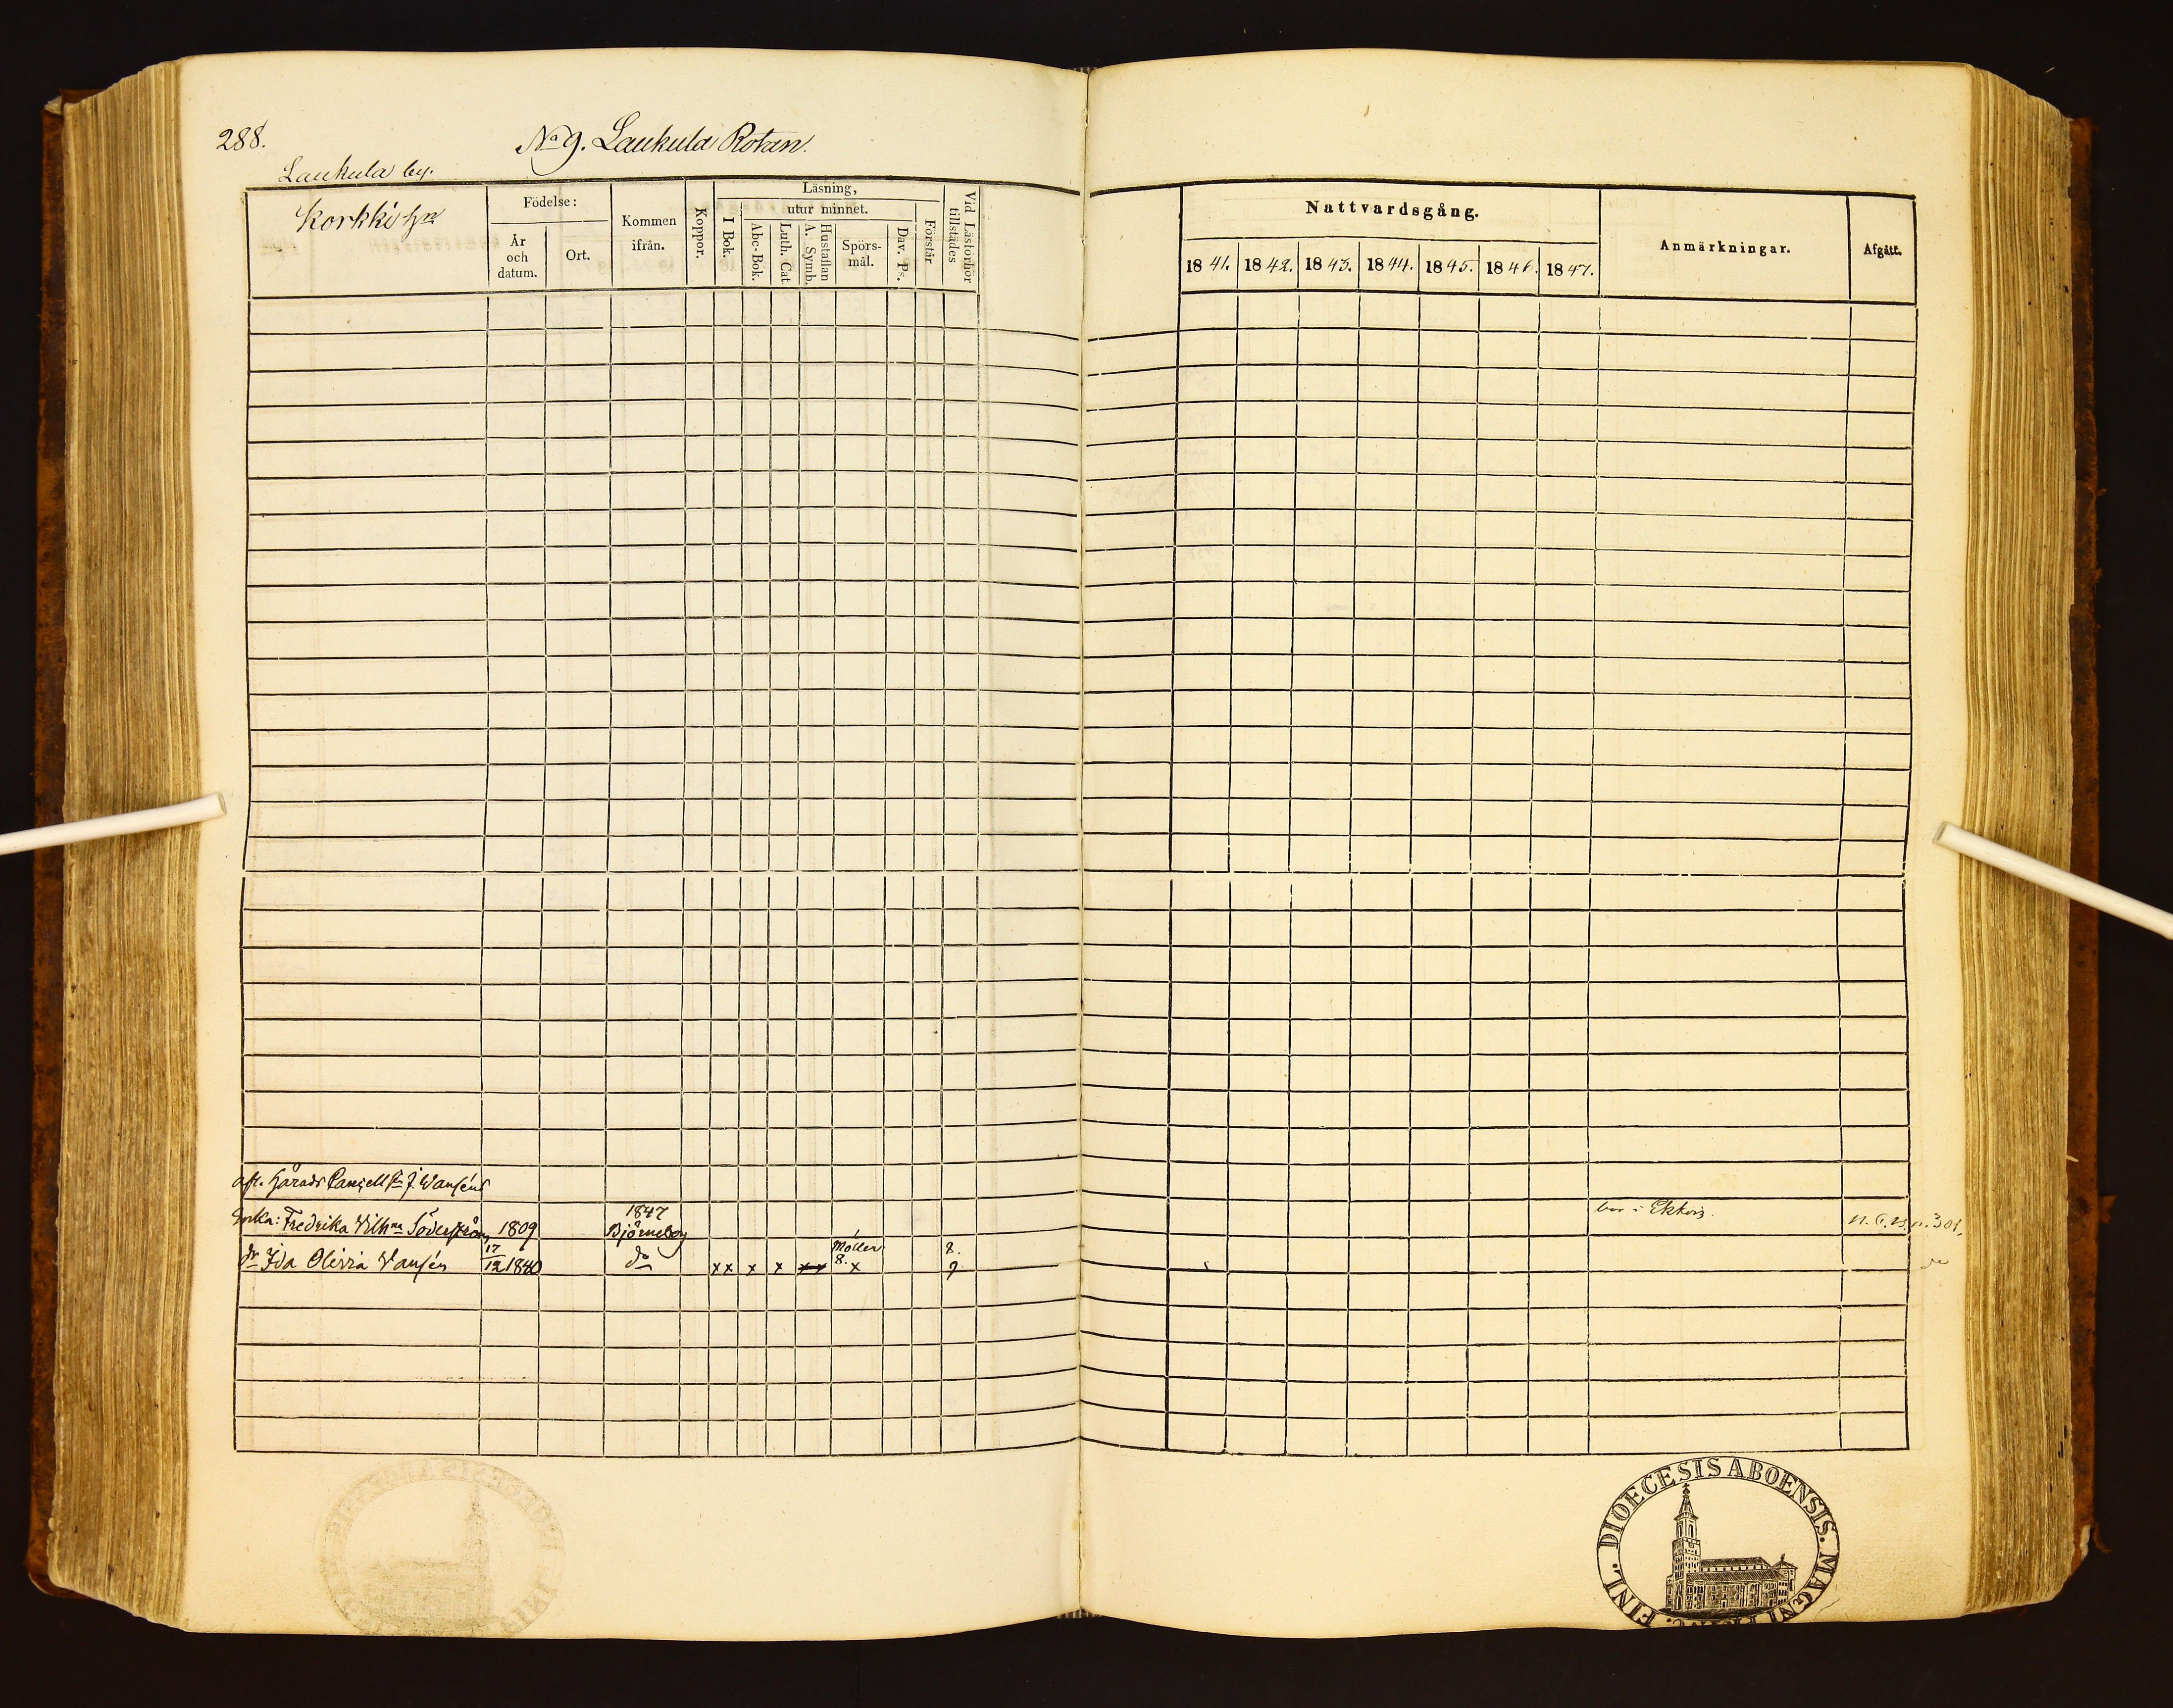 288.
No 9. Laukula Rotan.
Laukula by.
Korkki
Födelse:
År och datum.
Ort.
Kommen ifrån.
Koppor.
Läsning,
utur minnet.
I Bok.
Abc-Bok.
Luth. Cat
Hustaflan A. Symb.
Spörs-mål.
Dav. Ps.
Förstår
Vid Läsförhör tillstädes
Nattvardsgång.
1841. 1842. 1843. 1844. 1845. 1846. 1847.
Anmärkningar.
Afgått.
afl. Härads
1847
Enka: Fredrika Vilhna Söderström 1809 Björneborg bor i
N. C. B. p. 301.
Möller 8.
dr Ida Olivia Wansén 17/12 1840 do x x x x x x 8. x 9
do
DIOECESIS ABOENSIS. MAGNI FINL.